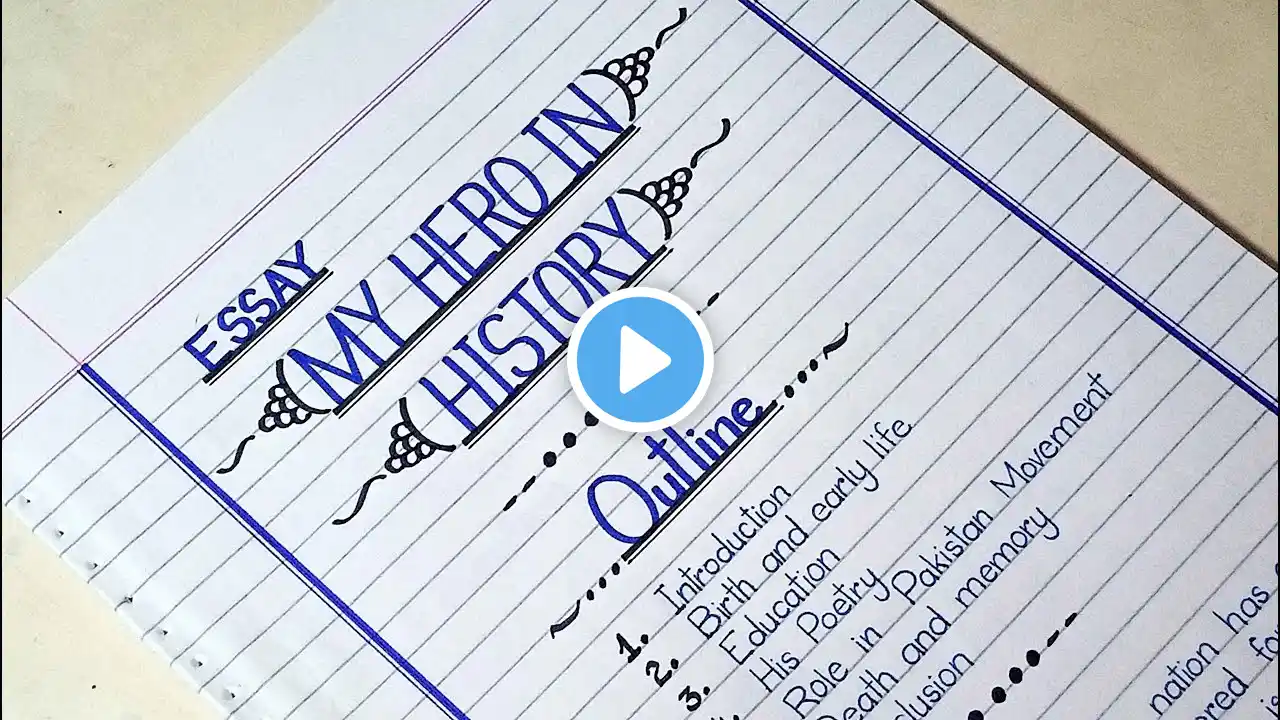 ESSAY
MY HERO IN
HISTORY
Outline
1. Introduction
2. Birth and early life
3. Education
His Poetry
Role in Pakistan Movement
Death and memory
nation has